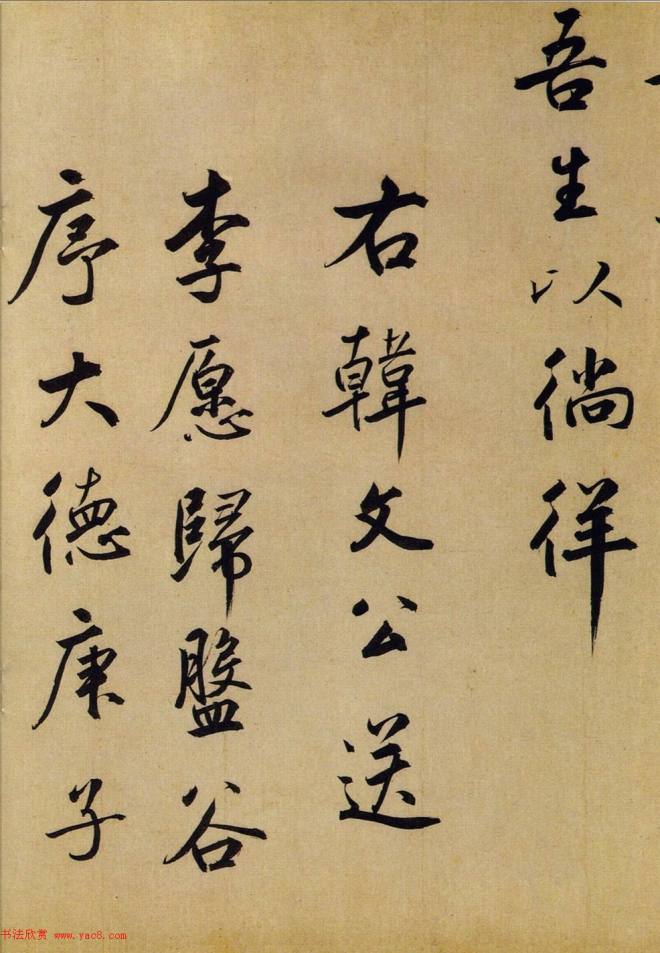 吾生以徜徉
右韓文公送
李愿歸盤谷
序大德庚子
书法欣赏 www.yac8.com